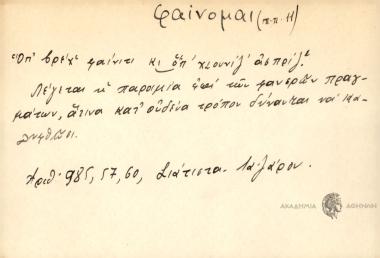 φαίνομαι (π.π. 11)
"Ὅπ' βρέχ' φαίνιτι κι ὅπ' χιουνίζ' ἀσπρίζ'."
Λέγεται ἡ παροιμία ἐπί τῶν φανερῶν πραγ-
μάτων, ἅτινα κατ' οὐδένα τρόπον δύνανται νά κα-
λυφθῶσι.
Ἀριθ. 985, 57, 60, Σιάτιστα.
ΑΚΑΔΗΜΙΑ ΑΘΗΝΩΝ